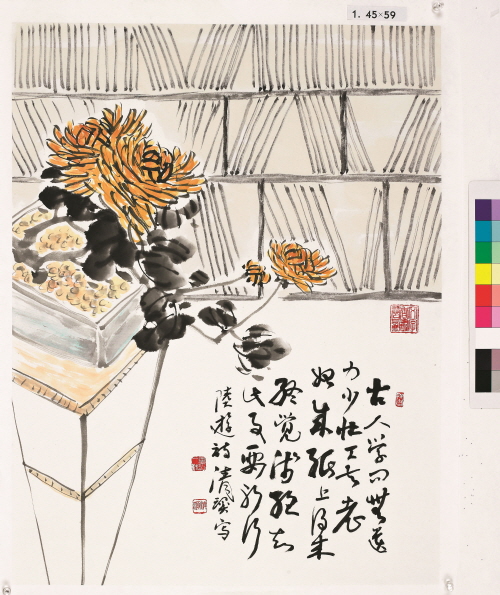 1. 45×59
古人学问無遗
力少壮工夫老
始成纸上得来
终觉浅绝知
此事要躬行
陸遊诗 写